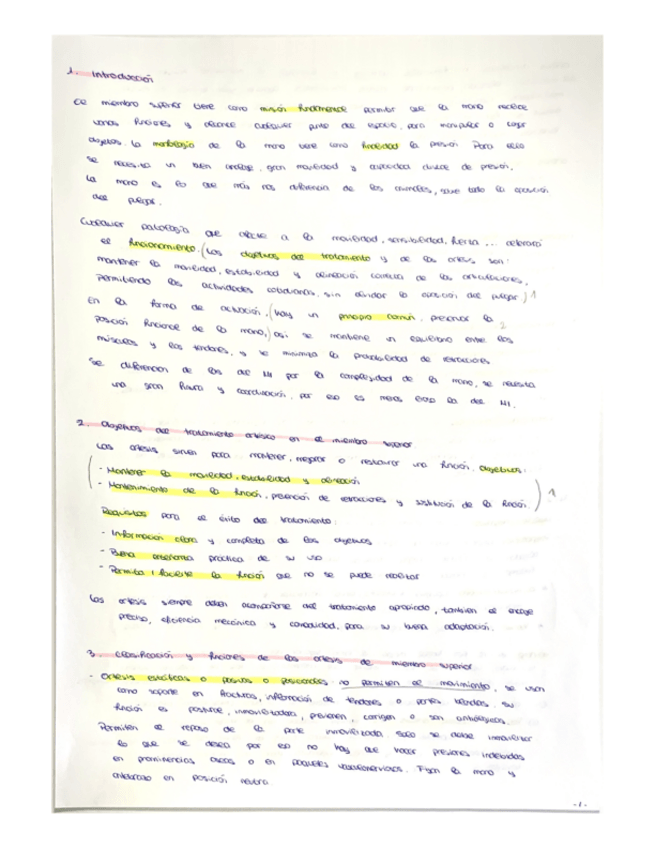 1. Introducción
El miembro superior tiene como misión fundamental permitir que la mano realice
varias funciones y alcance cualquier punto del espacio, para manipular o coger
objetos. La morfología de la mano tiene como finalidad la presión. Para ello
se necesita un buen anclaje, gran movilidad y capacidad de presión.
La mano es lo que más nos diferencia de los animales, sobre todo la oposición
del pulgar.
Cualquier patología que afecte a la movilidad, sensibilidad, fuerza ... alterará
el funcionamiento. (Los objetivos del tratamiento y de las ortesis son:
mantener la movilidad, estabilidad y alineación correcta de las articulaciones,
permitiendo las actividades cotidianas, sin olvidar la oposición del pulgar.) 1
En la forma de actuación, (hay un principio común, preservar la 2
posición funcional de la mano,) así se mantiene un equilibrio entre los
músculos y los tendones, y se minimiza la probabilidad de retracciones.
Se diferencian de las del MI por la complejidad de la mano, se necesita
una gran finura y coordinación, por eso es menos the del MI.
2. Objetivos del tratamiento ortésico en el miembro superior
Las ortesis sirven para mantener, mejorar o restaurar una función, objetivos:
- Mantener la movilidad, estabilidad y alineación
- Mantenimiento de la función, prevención de retracciones y sustitución de la función. ) 1
Requisitos para el éxito del tratamiento:
- Información clara y completa de los objetivos
- Buena enseñanza práctica de su uso
- Permita / facilite la función que no se puede realizar
Las ortesis siempre deben acompañarse del tratamiento apropiado, también el encaje
preciso, eficiencia mecánica y comodidad, para su buena adaptación.
3. Clasificación y funciones de las ortesis de miembro superior
- Ortesis estáticas o pasivas o posicionales no permiten el movimiento, se usan
como soporte en fracturas, inflamación de tendones o partes blandas, su
función es postural, inmovilizadora, previenen, corrigen o son antiálgicas.
Permiten el reposo de la parte inmovilizada, solo se debe inmovilizar
lo que se desea por eso no hay que hacer presiones indebidas
en prominencias óseas o en paquetes vasculonerviosos. Fijan la mano y
antebrazo en posición neutra.
-1-